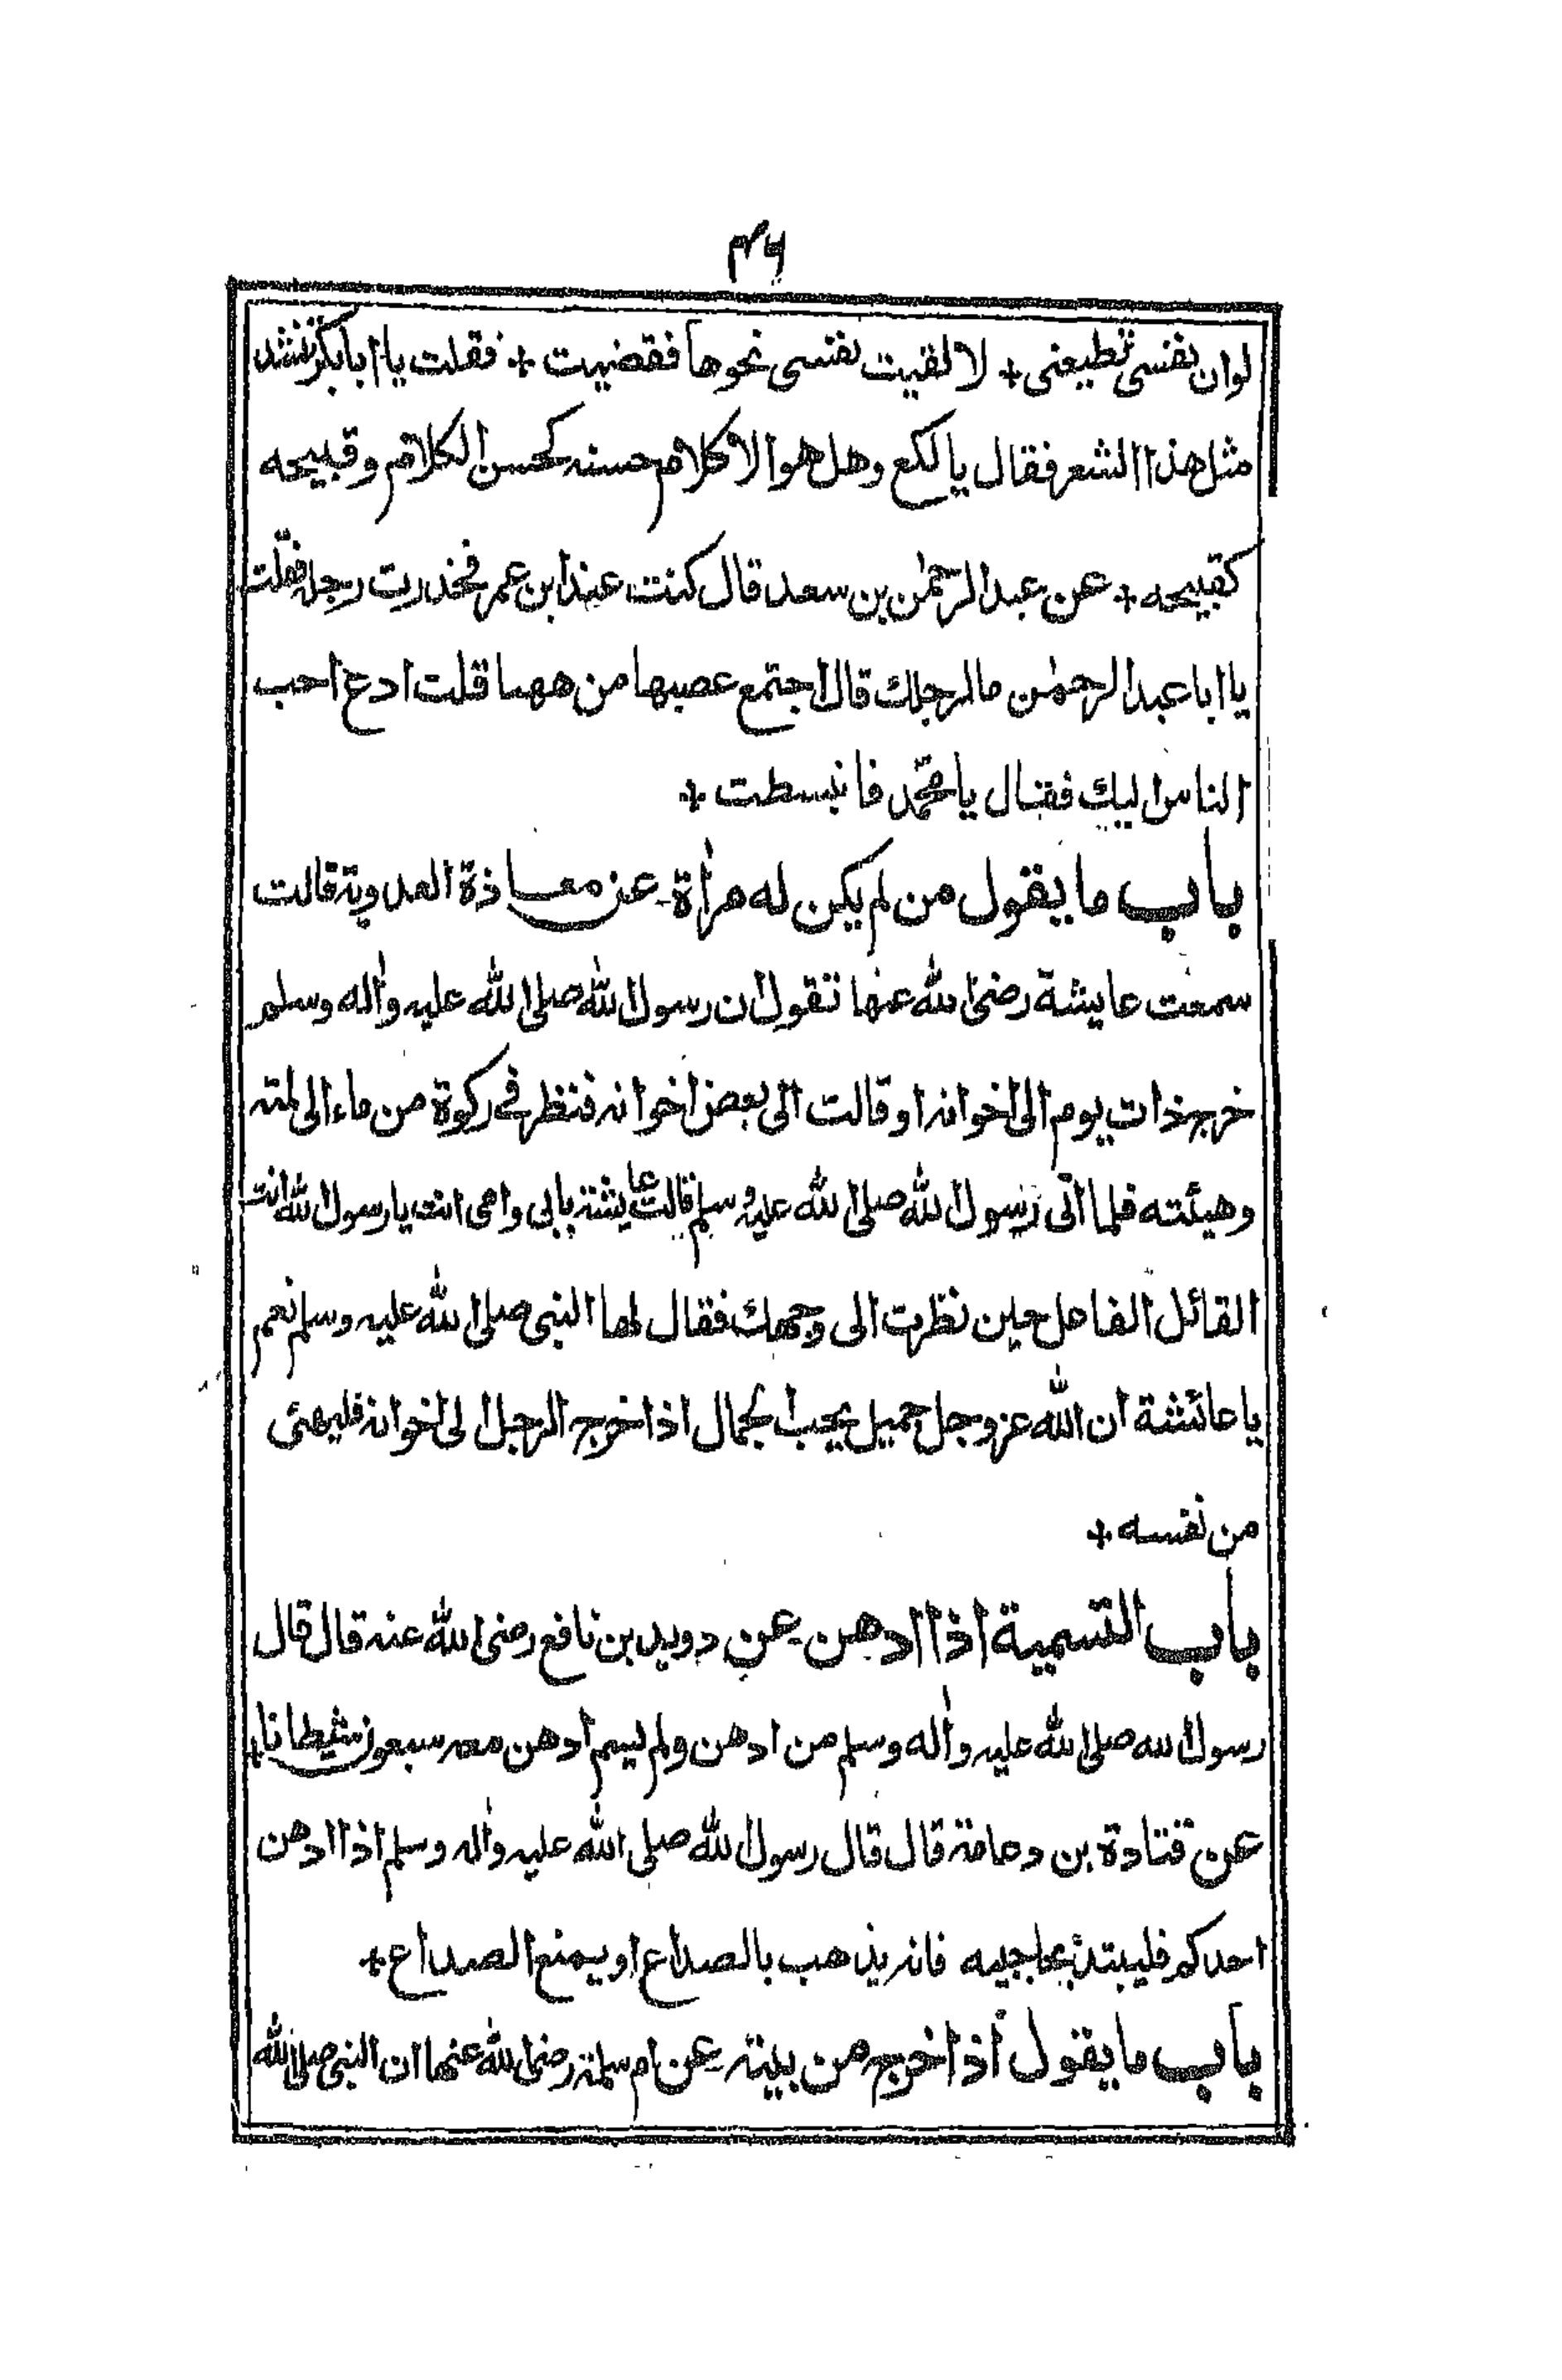 ۴۶
لوان نفسى تطيعنى + لالقيت نفسى نحوها فقضيت + فقلت يا ابابكر تنشد
مثل هذا الشعر فقال يالكع وهل هوالا كلام حسنه كحسن الكلام وقبيحه
كقبيحه + عن عبدالرحمٰن بن سعد قال كنت عندابن عمر فخدرت رجله فقلت
يا اباعبدالرحمٰن مالرجلك قال اجتمع عصبها من ههنا قلت ادع احب
الناس اليك فقال يا محمّد فانبسطت +
باب ما يقول من لم يكن له مرأة عن معاذة العدوية قالت
سمعت عايشة رضى الله عنها تقول ان رسول الله صلى الله عليه واٰله وسلم
خرج ذات يوم الى اخوانه او قالت الى بعض اخوانه فنظر فى ركوة من ماء الى لمته
وهيئته فلما اتى رسول الله صلى الله عليه وسلم قالت عايشة بابى وامى انت يارسول الله انت
القائل الفاعل حين نظرت الى وجهك فقال لها النبى صلى الله عليه وسلم نعم
يا عائشة ان الله عزوجل جميل يحب الجمال اذا خرج الرجل الى اخوانه فليهئ
من نفسه +
باب التسمية اذا ادهن عن دويد بن نافع رضى الله عنه قال قال
رسول الله صلى الله عليه واٰله وسلم من ادهن ولم يسم ادهن معه سبعون شيطانا +
عن قتادة بن دعامة قال قال رسول الله صلى الله عليه واٰله وسلم اذا ادهن
احدكم فليبتدئ بحاجبيه فانه يذهب بالصداع او يمنع الصداع +
باب ما يقول اذا خرج من بيته عن ام سلمة رضى الله عنها ان النبى صلى الله